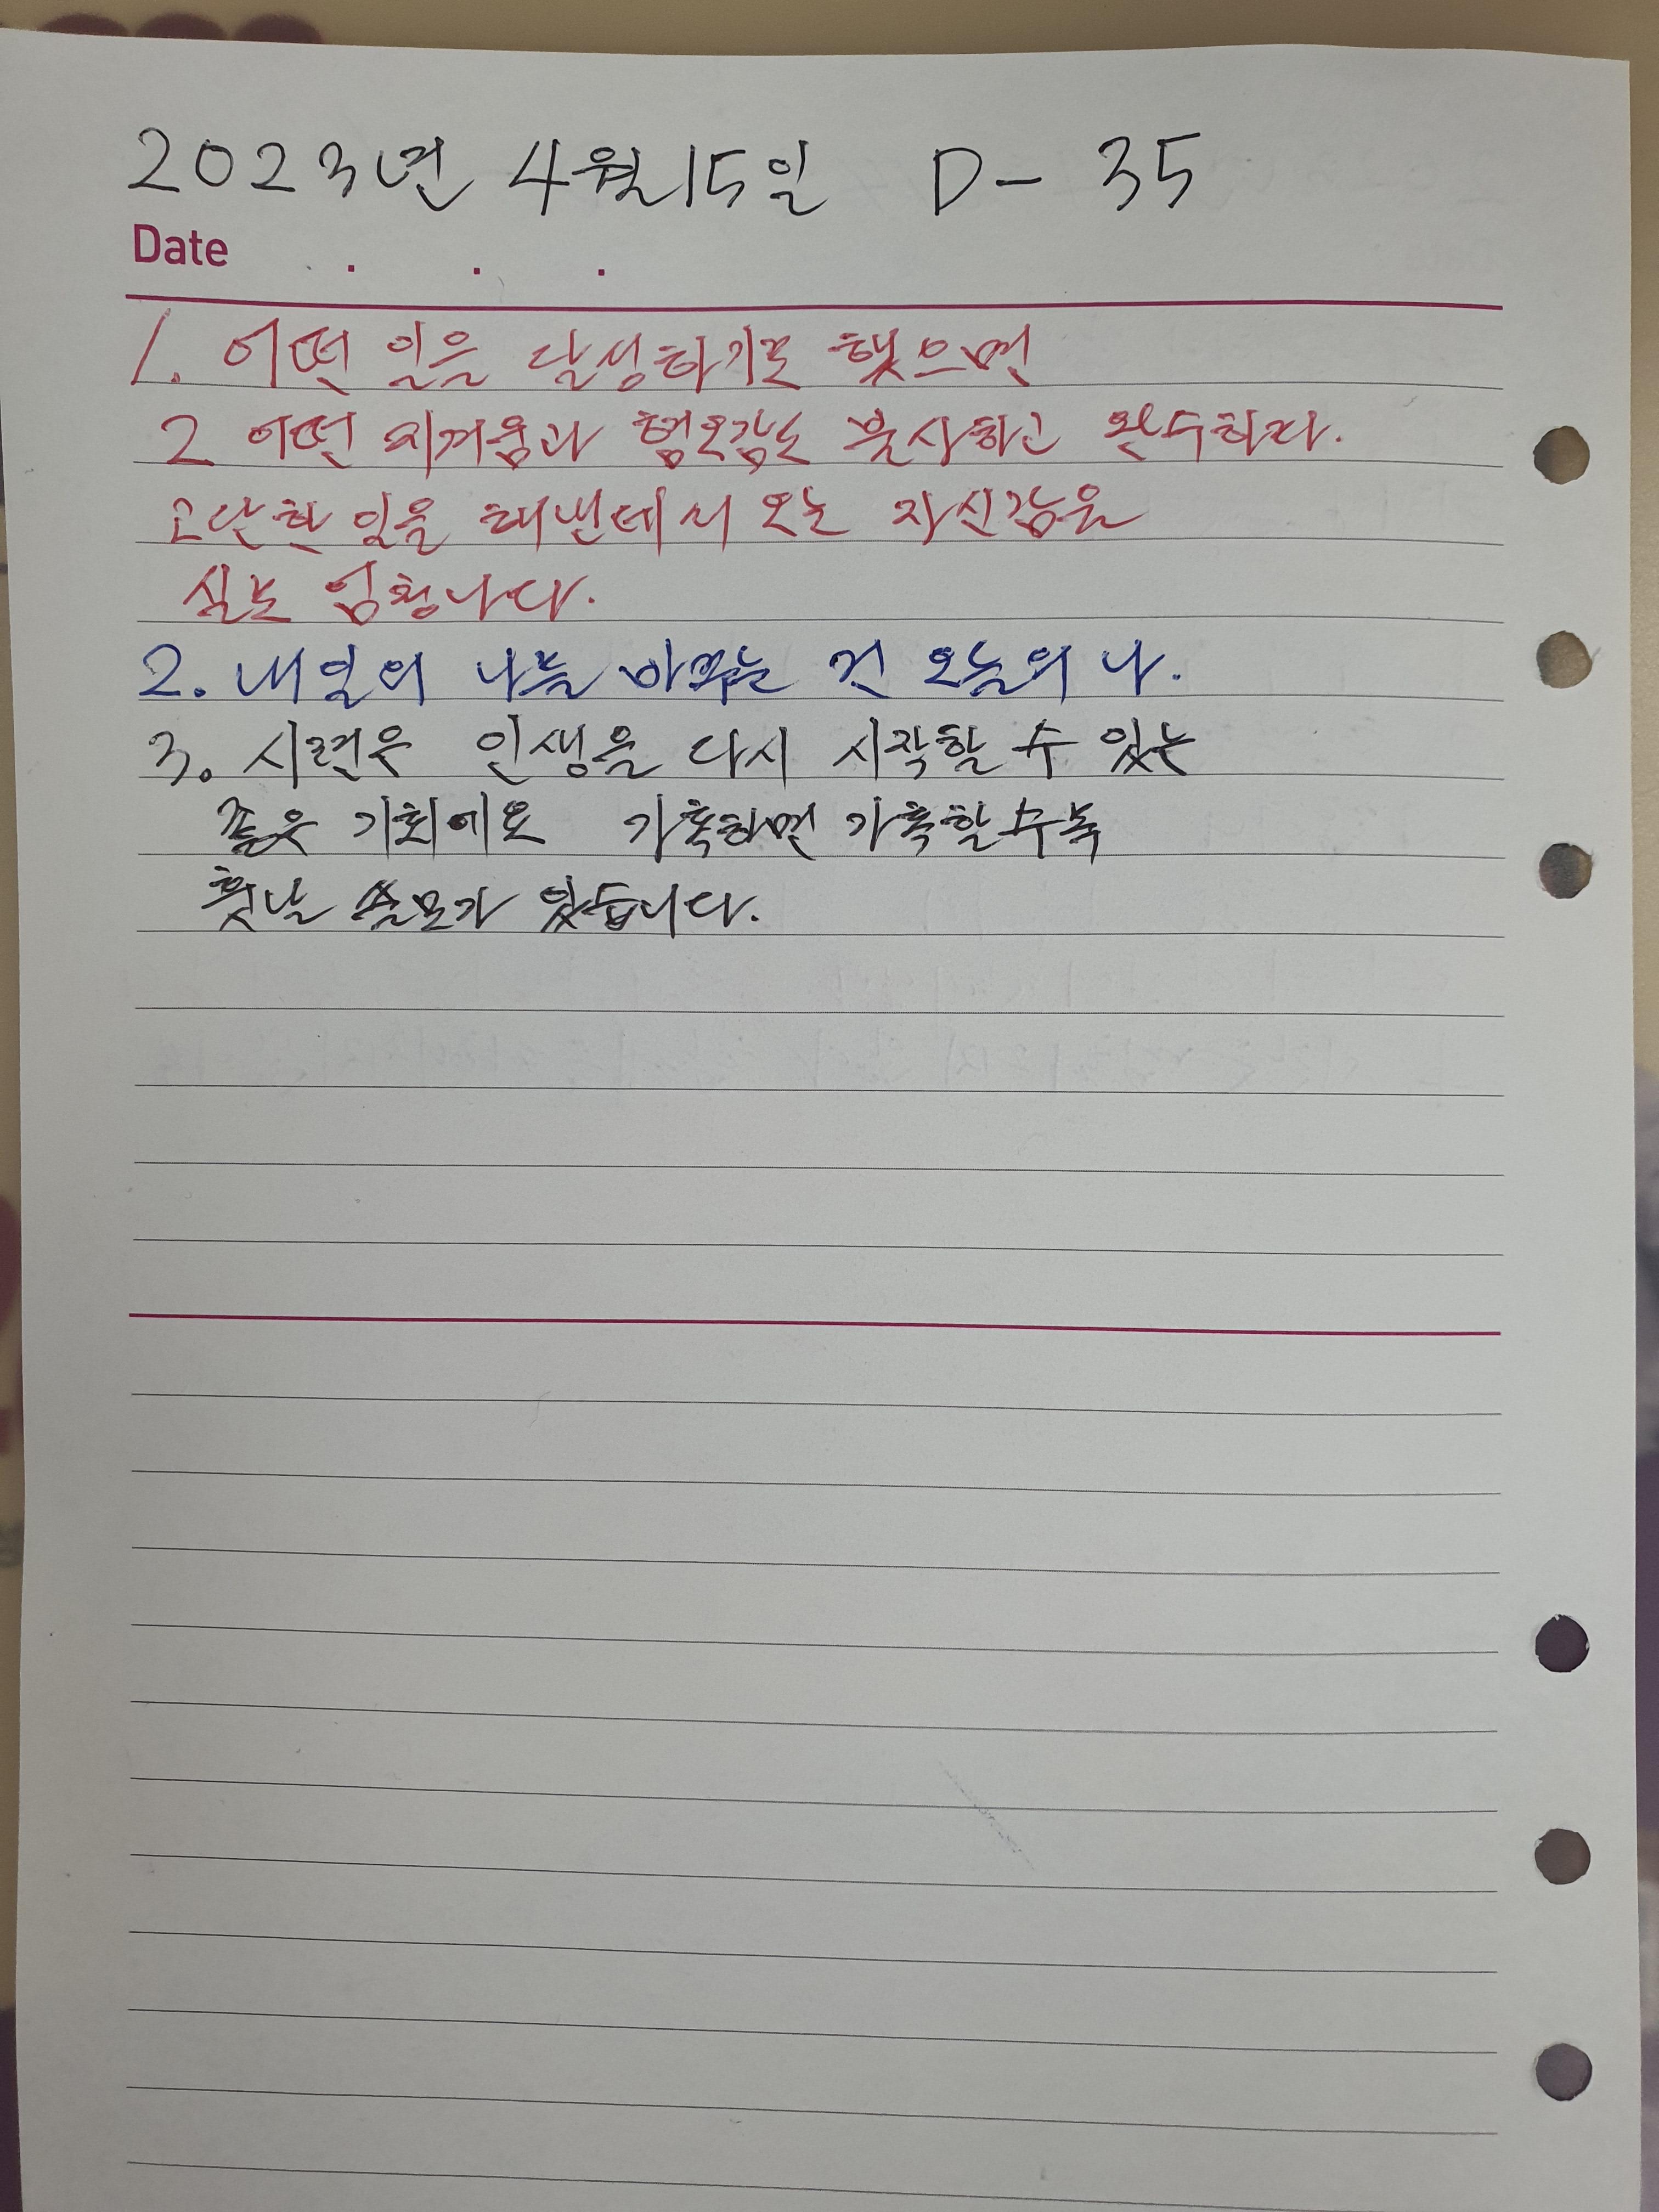 2023년 4월15일 D- 35
Date . . .
1. 어떤 일을 달성하기로 했으면
2 어떤 지겨움과 혐오감도 불사하고 완수하라.
고단한 일을 해낸데서 오는 자신감은
실로 엄청나다.
2. 내일의 나를 바꾸는 건 오늘의 나.
3. 시련은 인생을 다시 시작할 수 있는
좋은 기회에요 가혹하면 가혹할수록
훗날 쓸모가 있습니다.